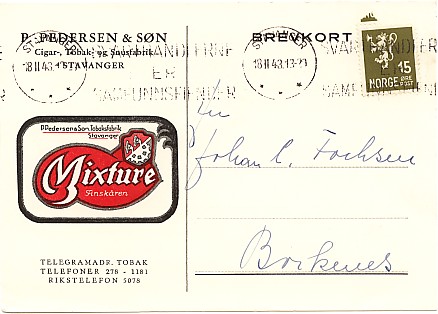 P. PEDERSEN & SØN
Cigar-, Tobak- og Snusfabrik
STAVANGER
BREVKORT
STAVANGER
18 II 43
SVARTEHANDLERNE
ER
SAMFUNNSFIENDER
STAVANGER
18 II 43.13-21
SVARTEHANDLERNE
ER
SAMFUNNSFIENDER
15
ØRE
NORGE POST
P. Pedersen & Søn Tobaksfabrik
Stavanger
Mixture
Finskåren
Johan C.
Borkenes
TELEGRAMADR. TOBAK
TELEFONER 278 - 1181
RIKSTELEFON 5078